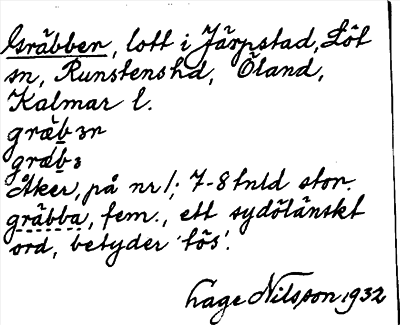 Gräbber, lott i Järpstad, Löt
sn, Runstenshd, Öland,
Kalmar l.
græ̀b̲ɜr
græ̀b̲ɜ
Åker, på nr 1; 7-8 tnld stor.
gräbba, fem., ett sydöländskt
ord, betyder 'tös'.
Hage Nilsson 1932